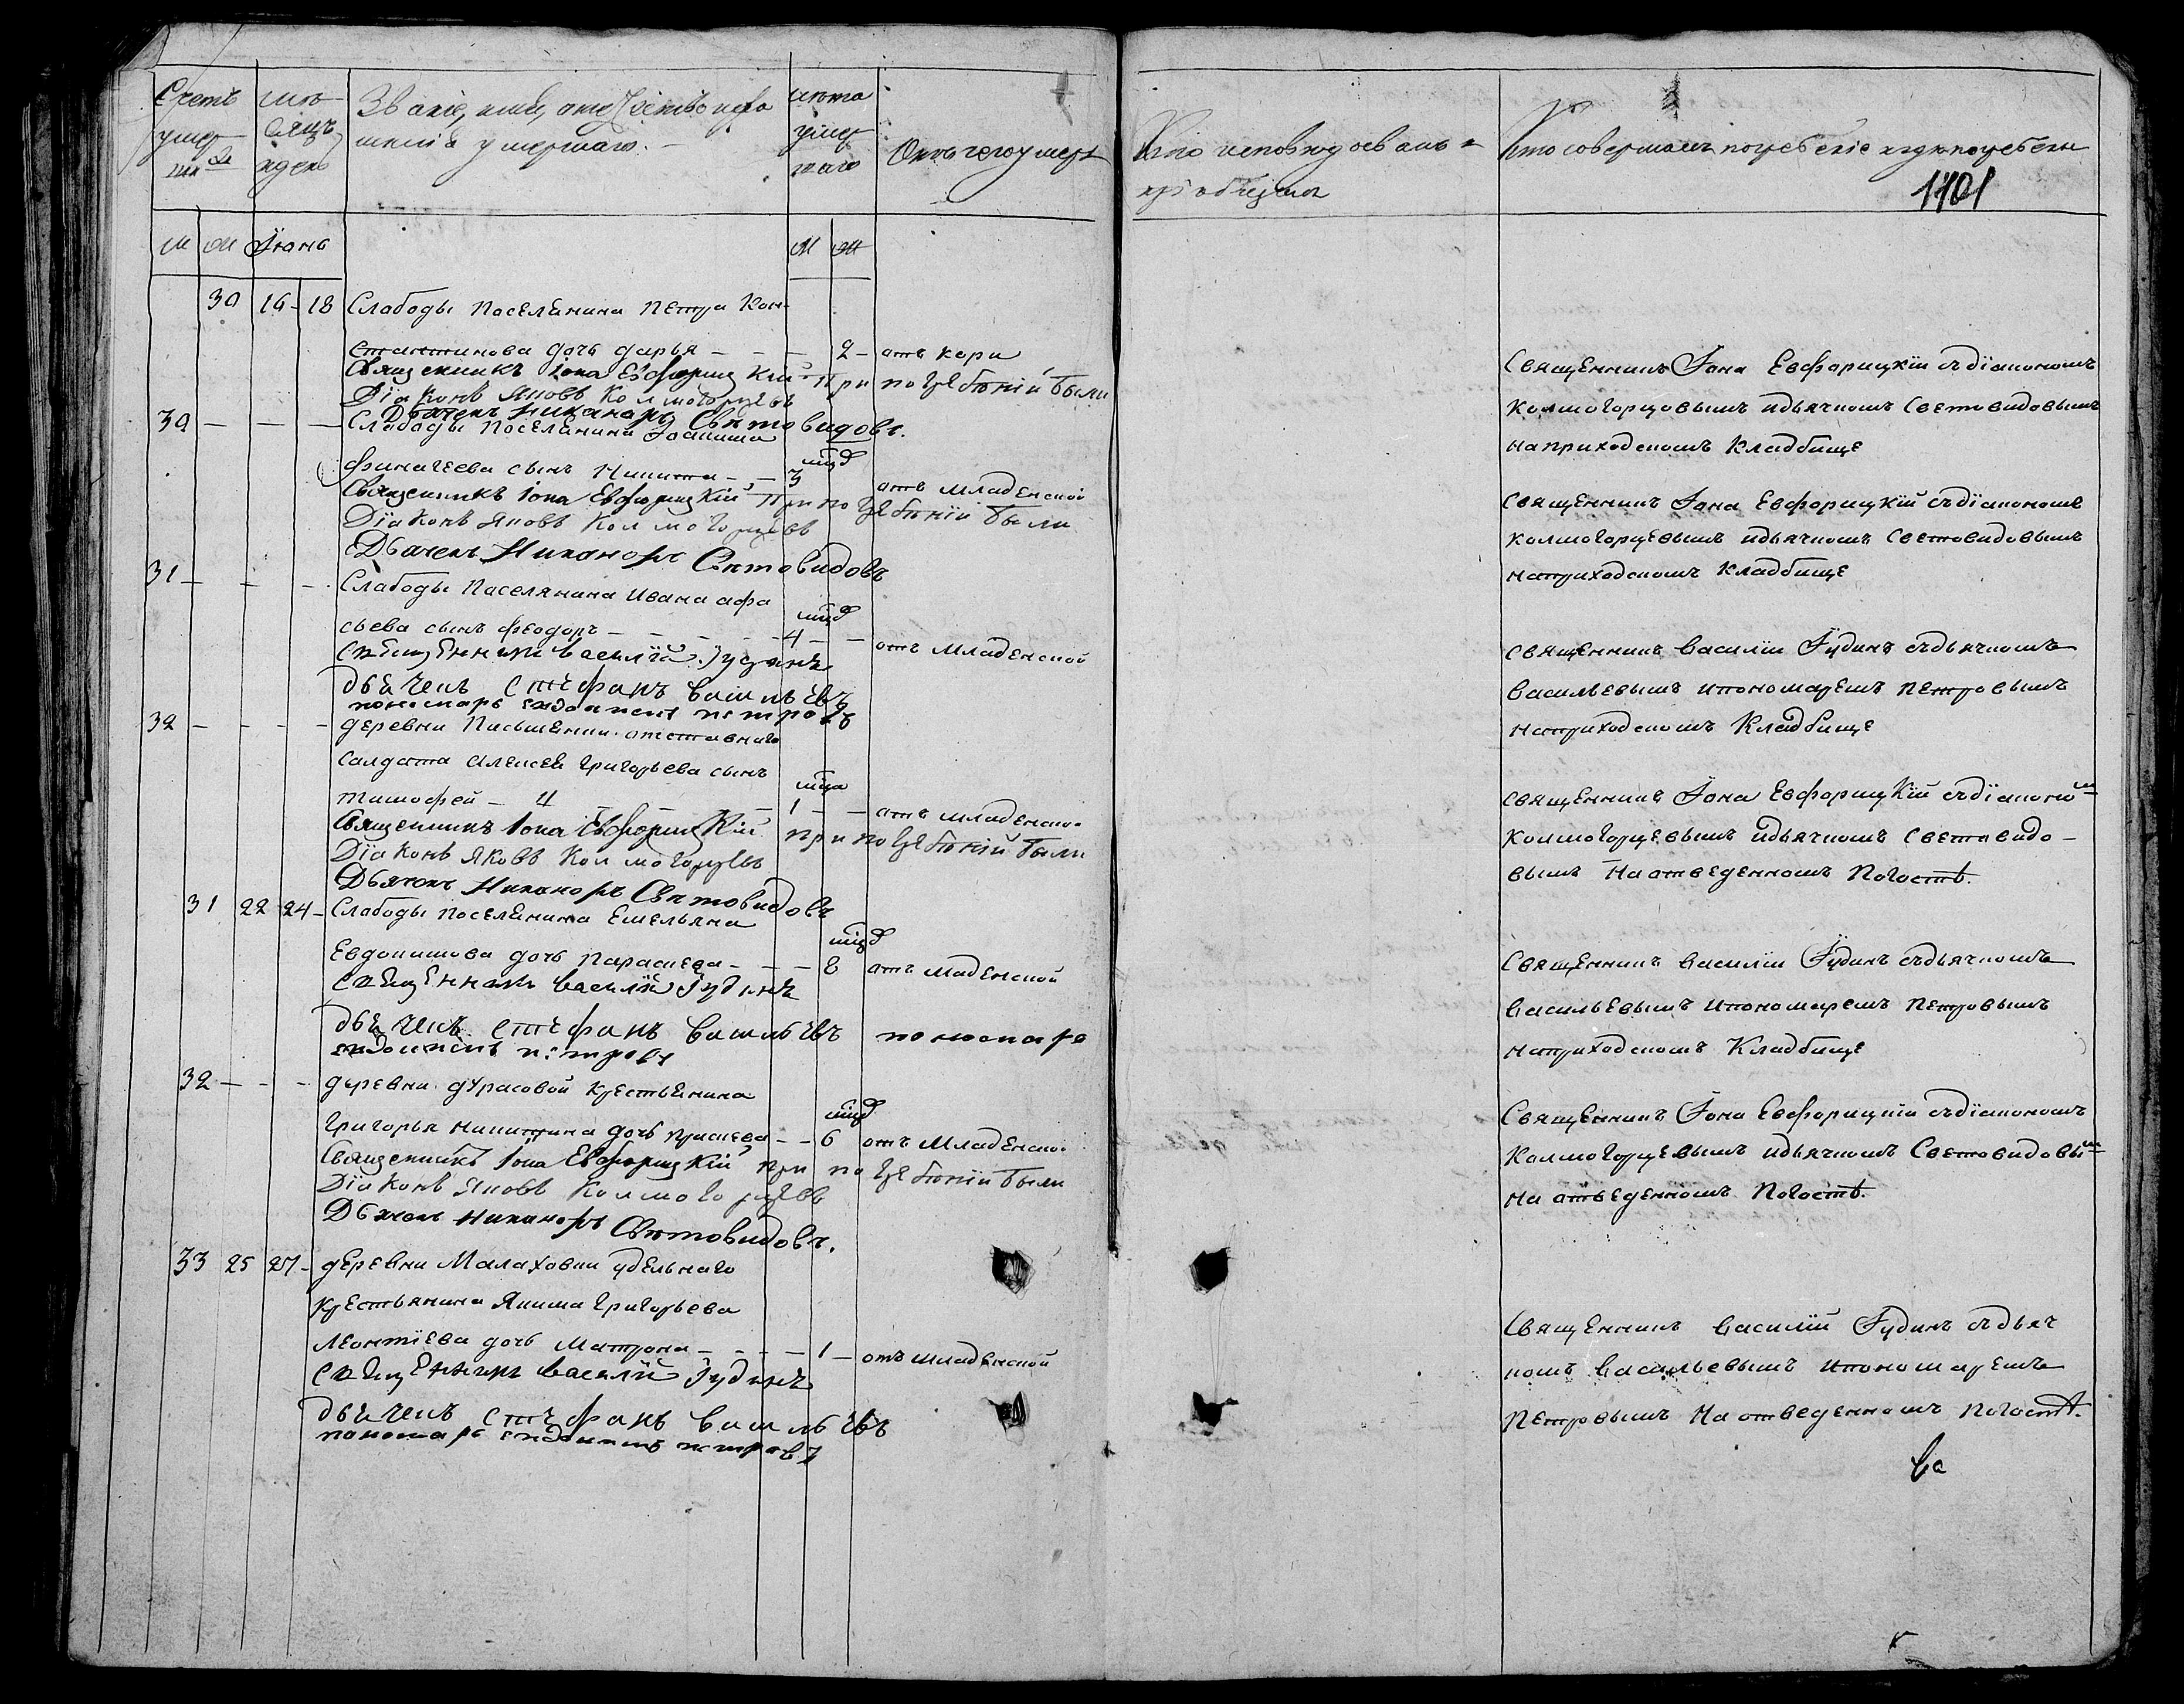 Счетъ умершихъ
мѣсяцъ и день
Званіе, имя, отечество и фамилія умершаго.
лѣта умершаго
Отъ чего умеръ
Кто исповѣдовалъ и пріобщалъ
Кто совершалъ погребеніе и гдѣ погребены
1101
М Ж Іюнь М Ж
30 16-18 Слабоды поселянина Петра Кон-
стантинова дочь дарья - - - 2 - отъ кори
Священникъ Іона Евфорицкій При погребеніи были
Діаконъ Яковъ Колмогорцевъ
Дьячекъ Никаноръ Свѣтовидовъ.
Священникъ Іона Евфорицкій съ діакономъ
колмогорцовымъ и дьячкомъ Световидовымъ
на приходскомъ кладбище
30 - - - Слабоды Поселянина
сынъ Никита - - 3 мцд отъ младенской
Священникъ Іона Евфорицкій При погребеніи были
Діаконъ Яковъ Колмогорцевъ
Дьячекъ Никаноръ Свѣтовидовъ
Священникъ Іона Евфорицкій съ діакономъ
колмогорцевымъ и дьячкомъ Световидовымъ
на приходскомъ кладбище
31 - - - Слабоды Поселянина Ивана афа
сьева сынъ Феодоръ - - - - 4 мцд - - отъ младенской
Священникъ Василій Іудинъ
дьячекъ Стефанъ Васильевъ
пономарь Петровъ
священникъ Василіи Іудинъ съ дьячкомъ
Васильевымъ и пономаремъ Петровымъ
на приходскомъ Кладбище
32 - - - - деревни отставнаго
Салдата Алексея Григорьева сынъ
Тимофей - - 1 мца - - отъ младенско.
Священникъ Іона Евфорицкій При погребеніи были
Діаконъ Яковъ Колмогорцевъ
Дьячекъ Никаноръ Свѣтовидовъ
священникъ Іона Евфорицкій съ діаконом
колмогорцевымъ и дьячкомъ Световидо-
вымъ На отведенномъ Погостѣ.
31 22 24 - Слабоды поселянина Емельяна
Евдокимова дочь Параскева - - - 8 мцд отъ маденской
Священникъ Василій Іудинъ
дьячекъ Стефанъ Васильевъ пономарь
Петровъ
Священникъ Василіи Іудинъ съ дьячкомъ
Васильевымъ и пономаремъ Петровымъ
на приходскомъ Кладбище
32 - - - деревни дурасовой крестьянина
Григорья Никитина дочь - - 6 мцд отъ Младенско.
Священникъ Іона Евфорицкій При погребеніи были
Діаконъ Яковъ Колмогорцевъ
Дьячекъ Никаноръ Свѣтовидовъ.
Священникъ Іона Евфорицкіи съ діакономъ
Калмогорцевымъ и дьячкомъ Световидовым
на отведенномъ Погостѣ.
33 25 27 - деревни Малаховки удельнаго
крестьянина Якима Григорьева
Леонтіева дочь Матрона - - - - 1 - отъ младенской
Священникъ Василій Іудинъ
дьячекъ Стефанъ Васильевъ
пономарь Петровъ
Священникъ Василій Іудинъ съ дьяч
комъ Васильевымъ и пономаремъ
Петровымъ На отведенномъ Погостѣ.
Ва